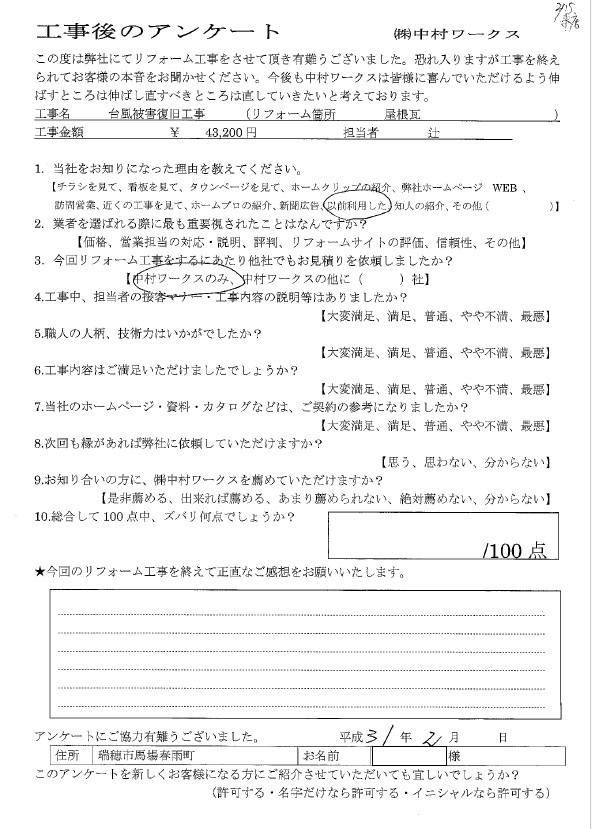 2/15
工事後のアンケート ㈱中村ワークス
この度は弊社にてリフォーム工事をさせて頂き有難うございました。恐れ入りますが工事を終え
られてお客様の本音をお聞かせください。今後も中村ワークスは皆様に喜んでいただけるよう伸
ばすところは伸ばし直すべきところは直していきたいと考えております。
工事名 台風被害復旧工事 (リフォーム箇所 屋根瓦 )
工事金額 ¥ 43,200円 担当者 辻
1. 当社をお知りになった理由を教えてください。
【チラシを見て、看板を見て、タウンページを見て、ホームクリップの紹介、弊社ホームページ WEB 、
訪問営業、近くの工事を見て、ホームプロの紹介、新聞広告、以前利用した、知人の紹介、その他( )】
2. 業者を選ばれる際に最も重要視されたことはなんですか?
【価格、営業担当の対応・説明、評判、リフォームサイトの評価、信頼性、その他】
3. 今回リフォーム工事をするにあたり他社でもお見積りを依頼しましたか?
【中村ワークスのみ、中村ワークスの他に( )社】
4.工事中、担当者の接客マナー・工事内容の説明等はありましたか?
【大変満足、満足、普通、やや不満、最悪】
5.職人の人柄、技術力はいかがでしたか?
【大変満足、満足、普通、やや不満、最悪】
6.工事内容はご満足いただけましたでしょうか?
【大変満足、満足、普通、やや不満、最悪】
7.当社のホームページ・資料・カタログなどは、ご契約の参考になりましたか?
【大変満足、満足、普通、やや不満、最悪】
8.次回も縁があれば弊社に依頼していただけますか?
【思う、思わない、分からない】
9.お知り合いの方に、㈱中村ワークスを薦めていただけますか?
【是非薦める、出来れば薦める、あまり薦められない、絶対薦めない、分からない】
10.総合して100点中、ズバリ何点でしょうか?
/100 点
★今回のリフォーム工事を終えて正直なご感想をお願いいたします。
アンケートにご協力有難うございました。 平成 31 年 2 月 日
住所 瑞穂市馬場春雨町 お名前 様
このアンケートを新しくお客様になる方にご紹介させていただいても宜しいでしょうか?
(許可する・名字だけなら許可する・イニシャルなら許可する)